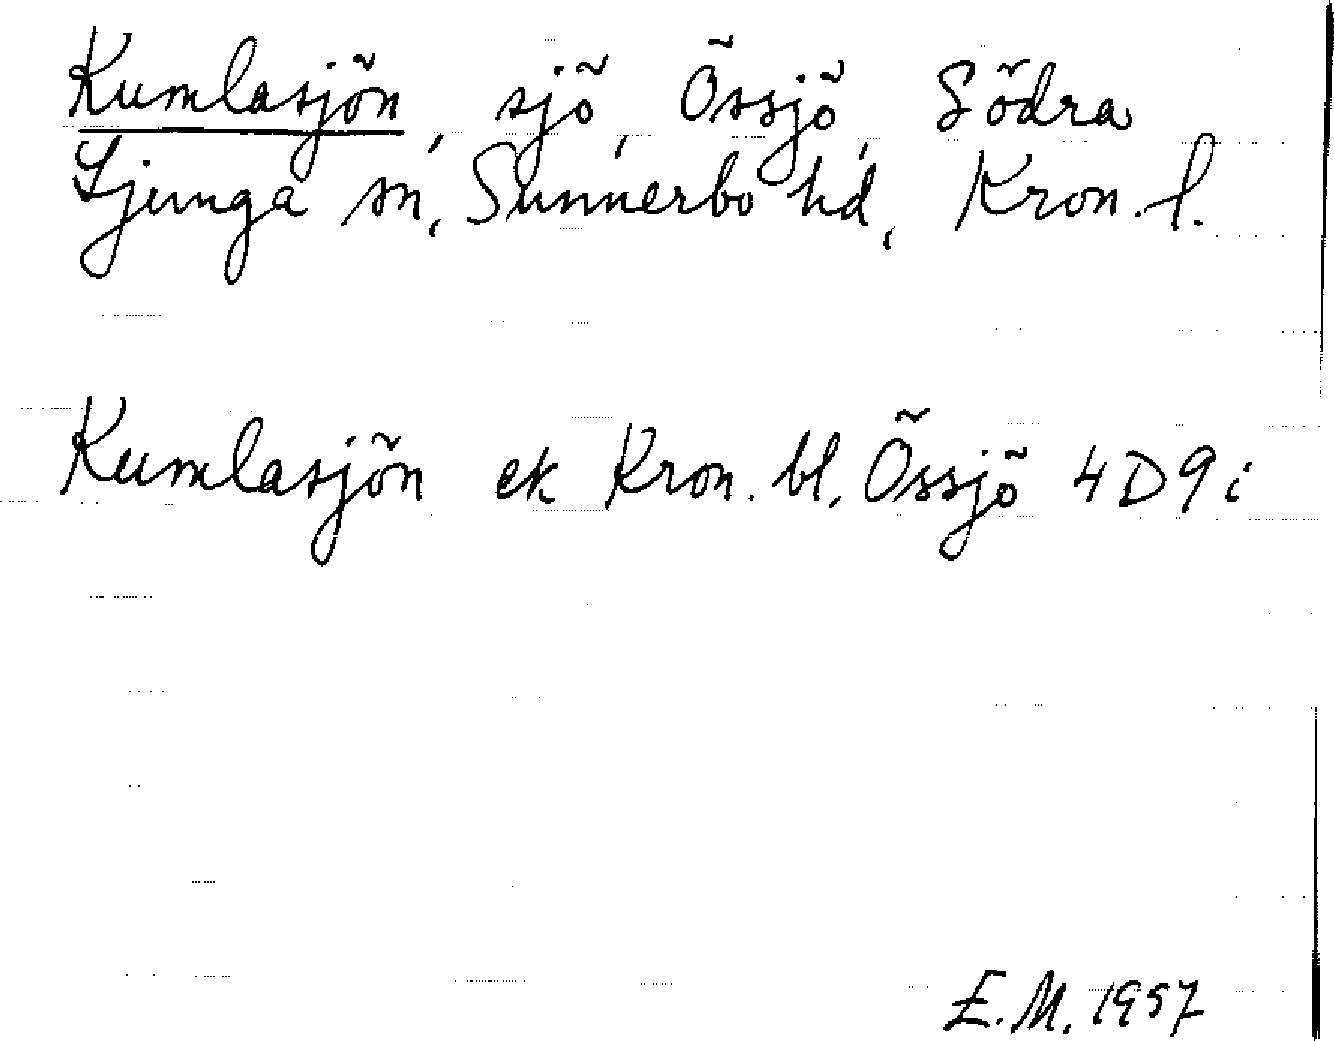 Kumlasjön, sjö, Össjö, Södra
Ljunga sn, Sunnerbo hd, Kron. l.
Kumlasjön ek Kron. bl, Össjö 4D9i
E.M. 1957